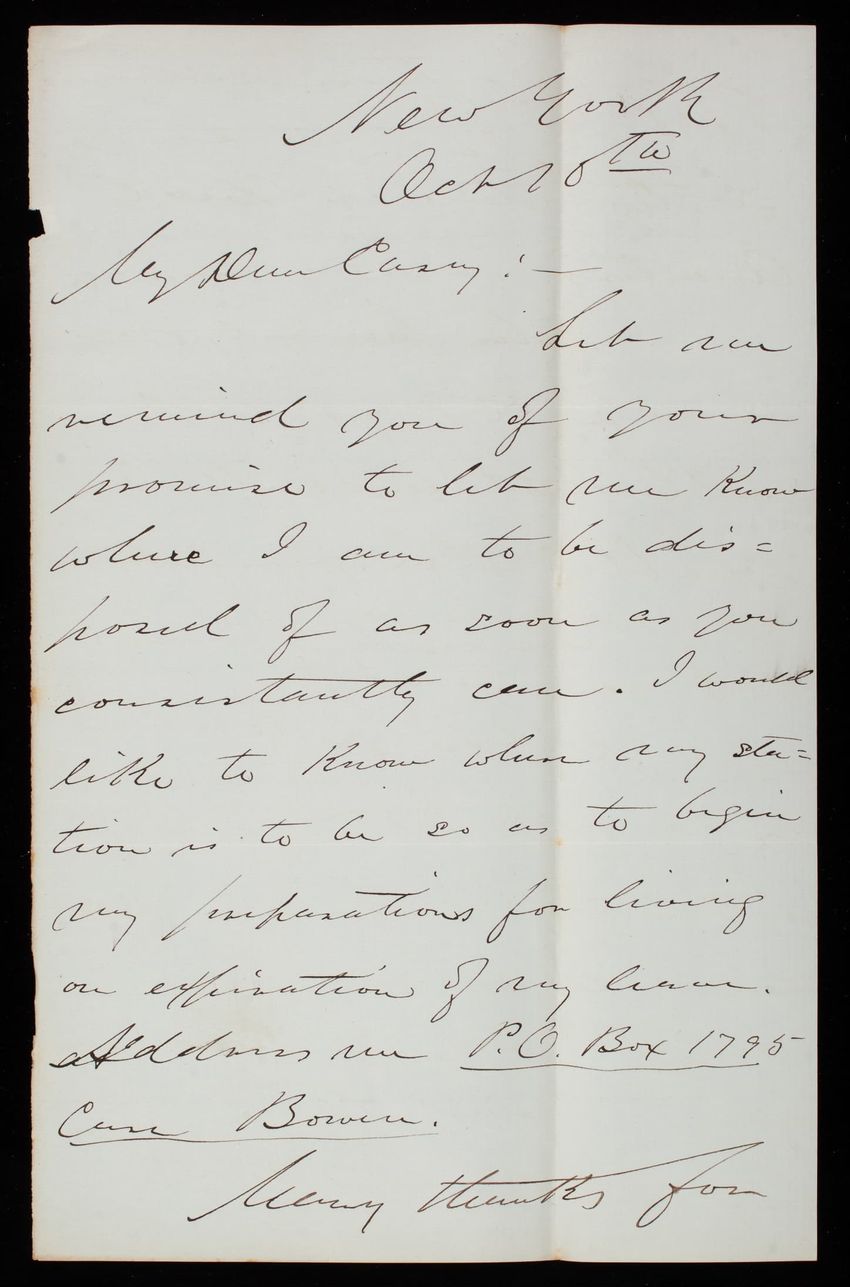 New York
Oct 10th
My Dear Casey:—
Let me
remind you of your
promise to let me know
where I am to be dis=
posed of as soon as you
consistantly can. I would
like to know where my sta=
tion is to be so as to begin
my preparations for living
on expiration of my leave.
Address me P.O. Box 1795
Care Bowen.
Many thanks for